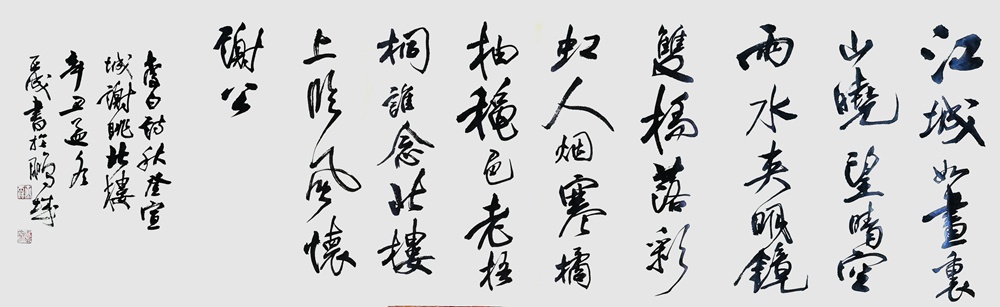 江城如畫裏
山曉望晴空
兩水夾明鏡
雙橋落彩
虹人烟寒橘
柚穐色老梧
桐誰念北樓
上臨風懷
謝公
李白詩秋登宣
城謝眺北樓
辛丑孟冬
書於鵬城